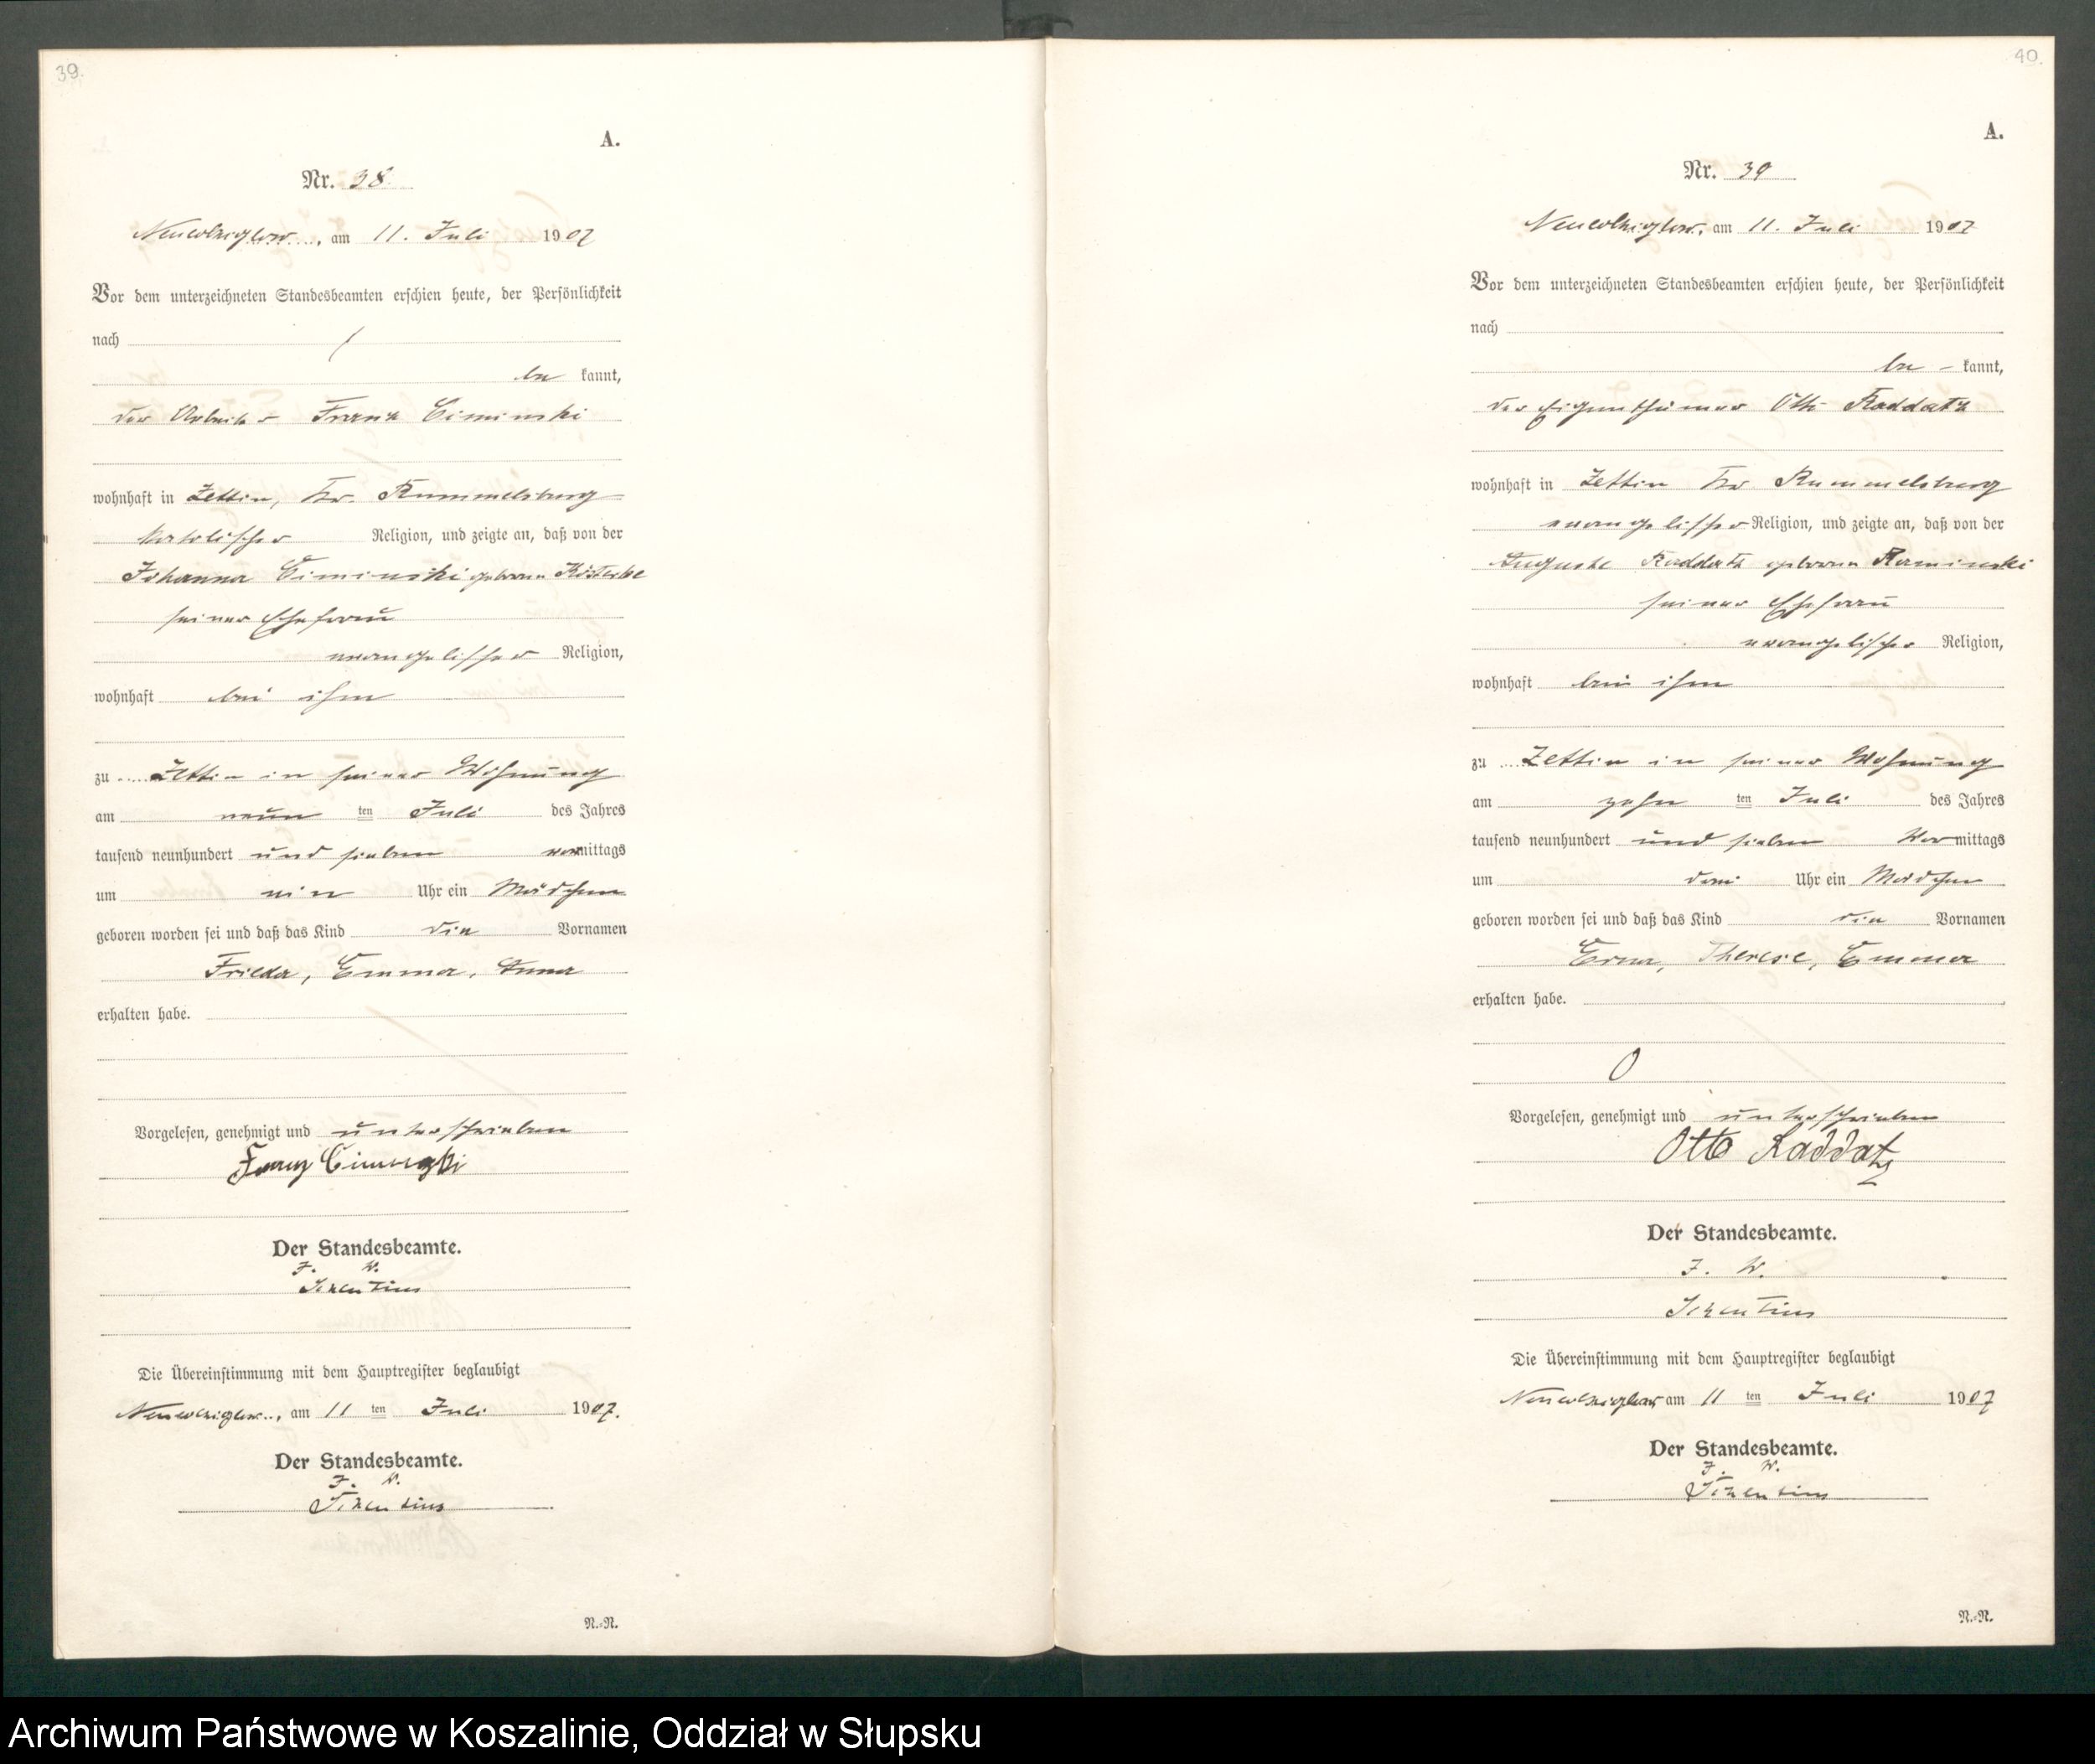 39.
A.
Nr. 38.
Neukolziglow, am 11. Juli 1907
Vor dem unterzeichneten Standesbeamten erschien heute, der Persönlichkeit
nach
be kannt,
der Arbeiter Franz Ciminski
wohnhaft in Zettin, Kr. Rummelsburg
katolischer Religion, und zeigte an, daß von der
Johanna Ciminski geborene
seiner Ehefrau
evangelischer Religion,
wohnhaft bei ihm
zu Zettin in seiner Wohnung
am neun ten Juli des Jahres
tausend neunhundert und sieben vormittags
um ein Uhr ein Mädchen
geboren worden sei und daß das Kind die Vornamen
Frieda, Emma, Anna
erhalten habe.
Vorgelesen, genehmigt und unterschrieben
Franz Ciminski
Der Standesbeamte.
J. V.
Die Übereinstimmung mit dem Hauptregister beglaubigt
Neukolziglow, am 11 ten Juli 1907.
Der Standesbeamte.
J. V.
N.-N.
40.
A.
Nr. 39
Neukolziglow, am 11. Juli 1907
Vor dem unterzeichneten Standesbeamten erschien heute, der Persönlichkeit
nach
be - kannt,
der Eigenthümer Otto Raddatz
wohnhaft in Zettin Kr Rummelsburg
evangelischer Religion, und zeigte an, daß von der
Auguste Raddatz geborene Kaminski
seiner Ehefrau
evangelischer Religion,
wohnhaft bei ihm
zu Zettin in seiner Wohnung
am zehn ten Juli des Jahres
tausend neunhundert und sieben Vormittags
um drei Uhr ein Mädchen
geboren worden sei und daß das Kind die Vornamen
Erna, Therese, Emma
erhalten habe.
Vorgelesen, genehmigt und unterschrieben
Otto Raddatz
Der Standesbeamte.
J. V.
Die Übereinstimmung mit dem Hauptregister beglaubigt
Neukolziglow am 11 ten Juli 1907
Der Standesbeamte.
J. V.
N.-N.
Archiwum Państwowe w Koszalinie, Oddział w Słupsku